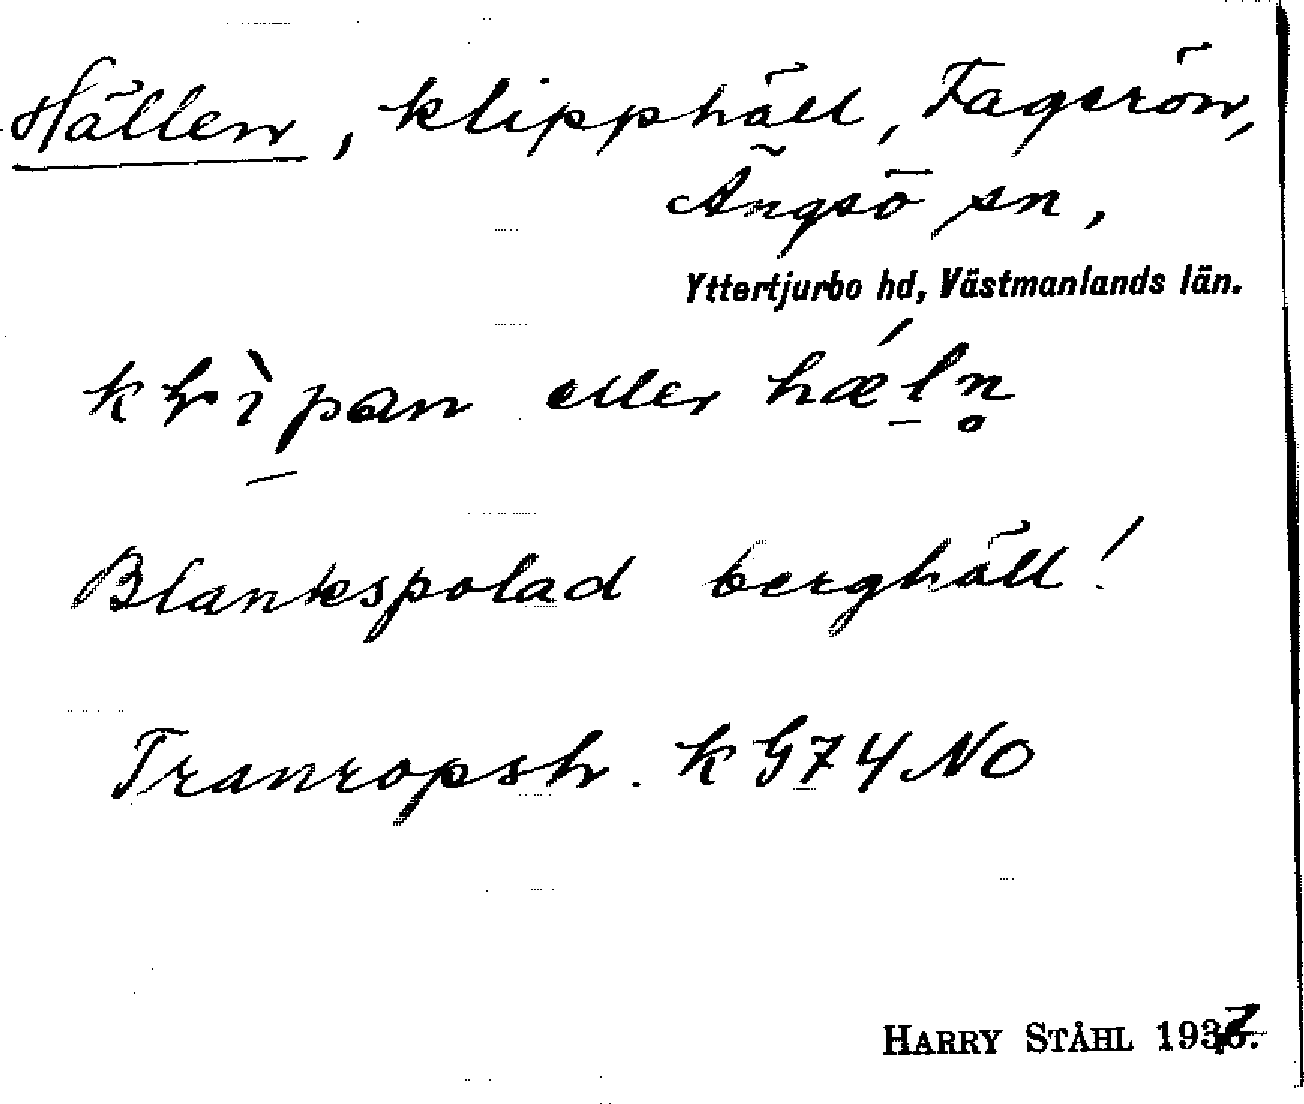 Hällen, klipphäll, Fagerön,
Ängsö sn,
Yttertjurbo hd, Västmanlands län.
eller hæ´ln̥
Blankspolad berghäll!
k G74 NO
HARRY STÅHL 1937.